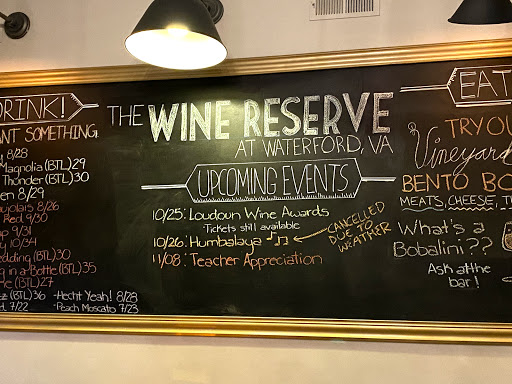 DRINK!
ANT SOMETHING
8/28
Magnolia (BTL) 29
Thunder (BTL) 30
en 8/29
8/26
Red 9/30
9/31
10/34
edding (BTL) 30
g in a Bottle (BTL) 35
(BTL) 27
(BTL) 36 -Hecht Yeah! 8/28
7/22 -Peach Moscato 7/23
THE WINE RESERVE
AT WATERFORD, VA
UPCOMING EVENTS
10/25: Loudoun Wine Awards
·Tickets still available
10/26: Humbalaya
CANCELLED
DUE TO
WEATHER
11/08: Teacher Appreciation
EAT
TRY OU
Vineyard
BENTO BO
MEATS, CHEESE, T
What's a
Bobalini??
Ask at the
bar!